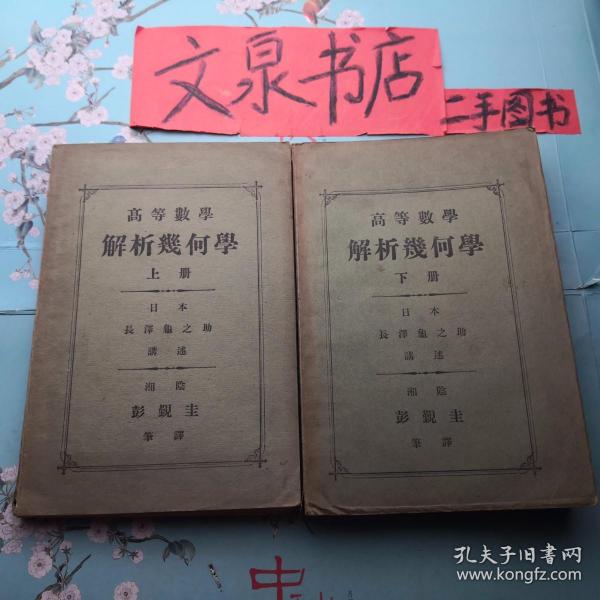 文泉书店
二手图书
高等數學
解析幾何學
上册
日本
長澤龜之助
講述
湘陰
彭觀圭
筆譯
高等數學
解析幾何學
下册
日本
長澤龜之助
講述
湘陰
彭觀圭
筆譯
中
孔夫子旧书网
www.kongfz.com